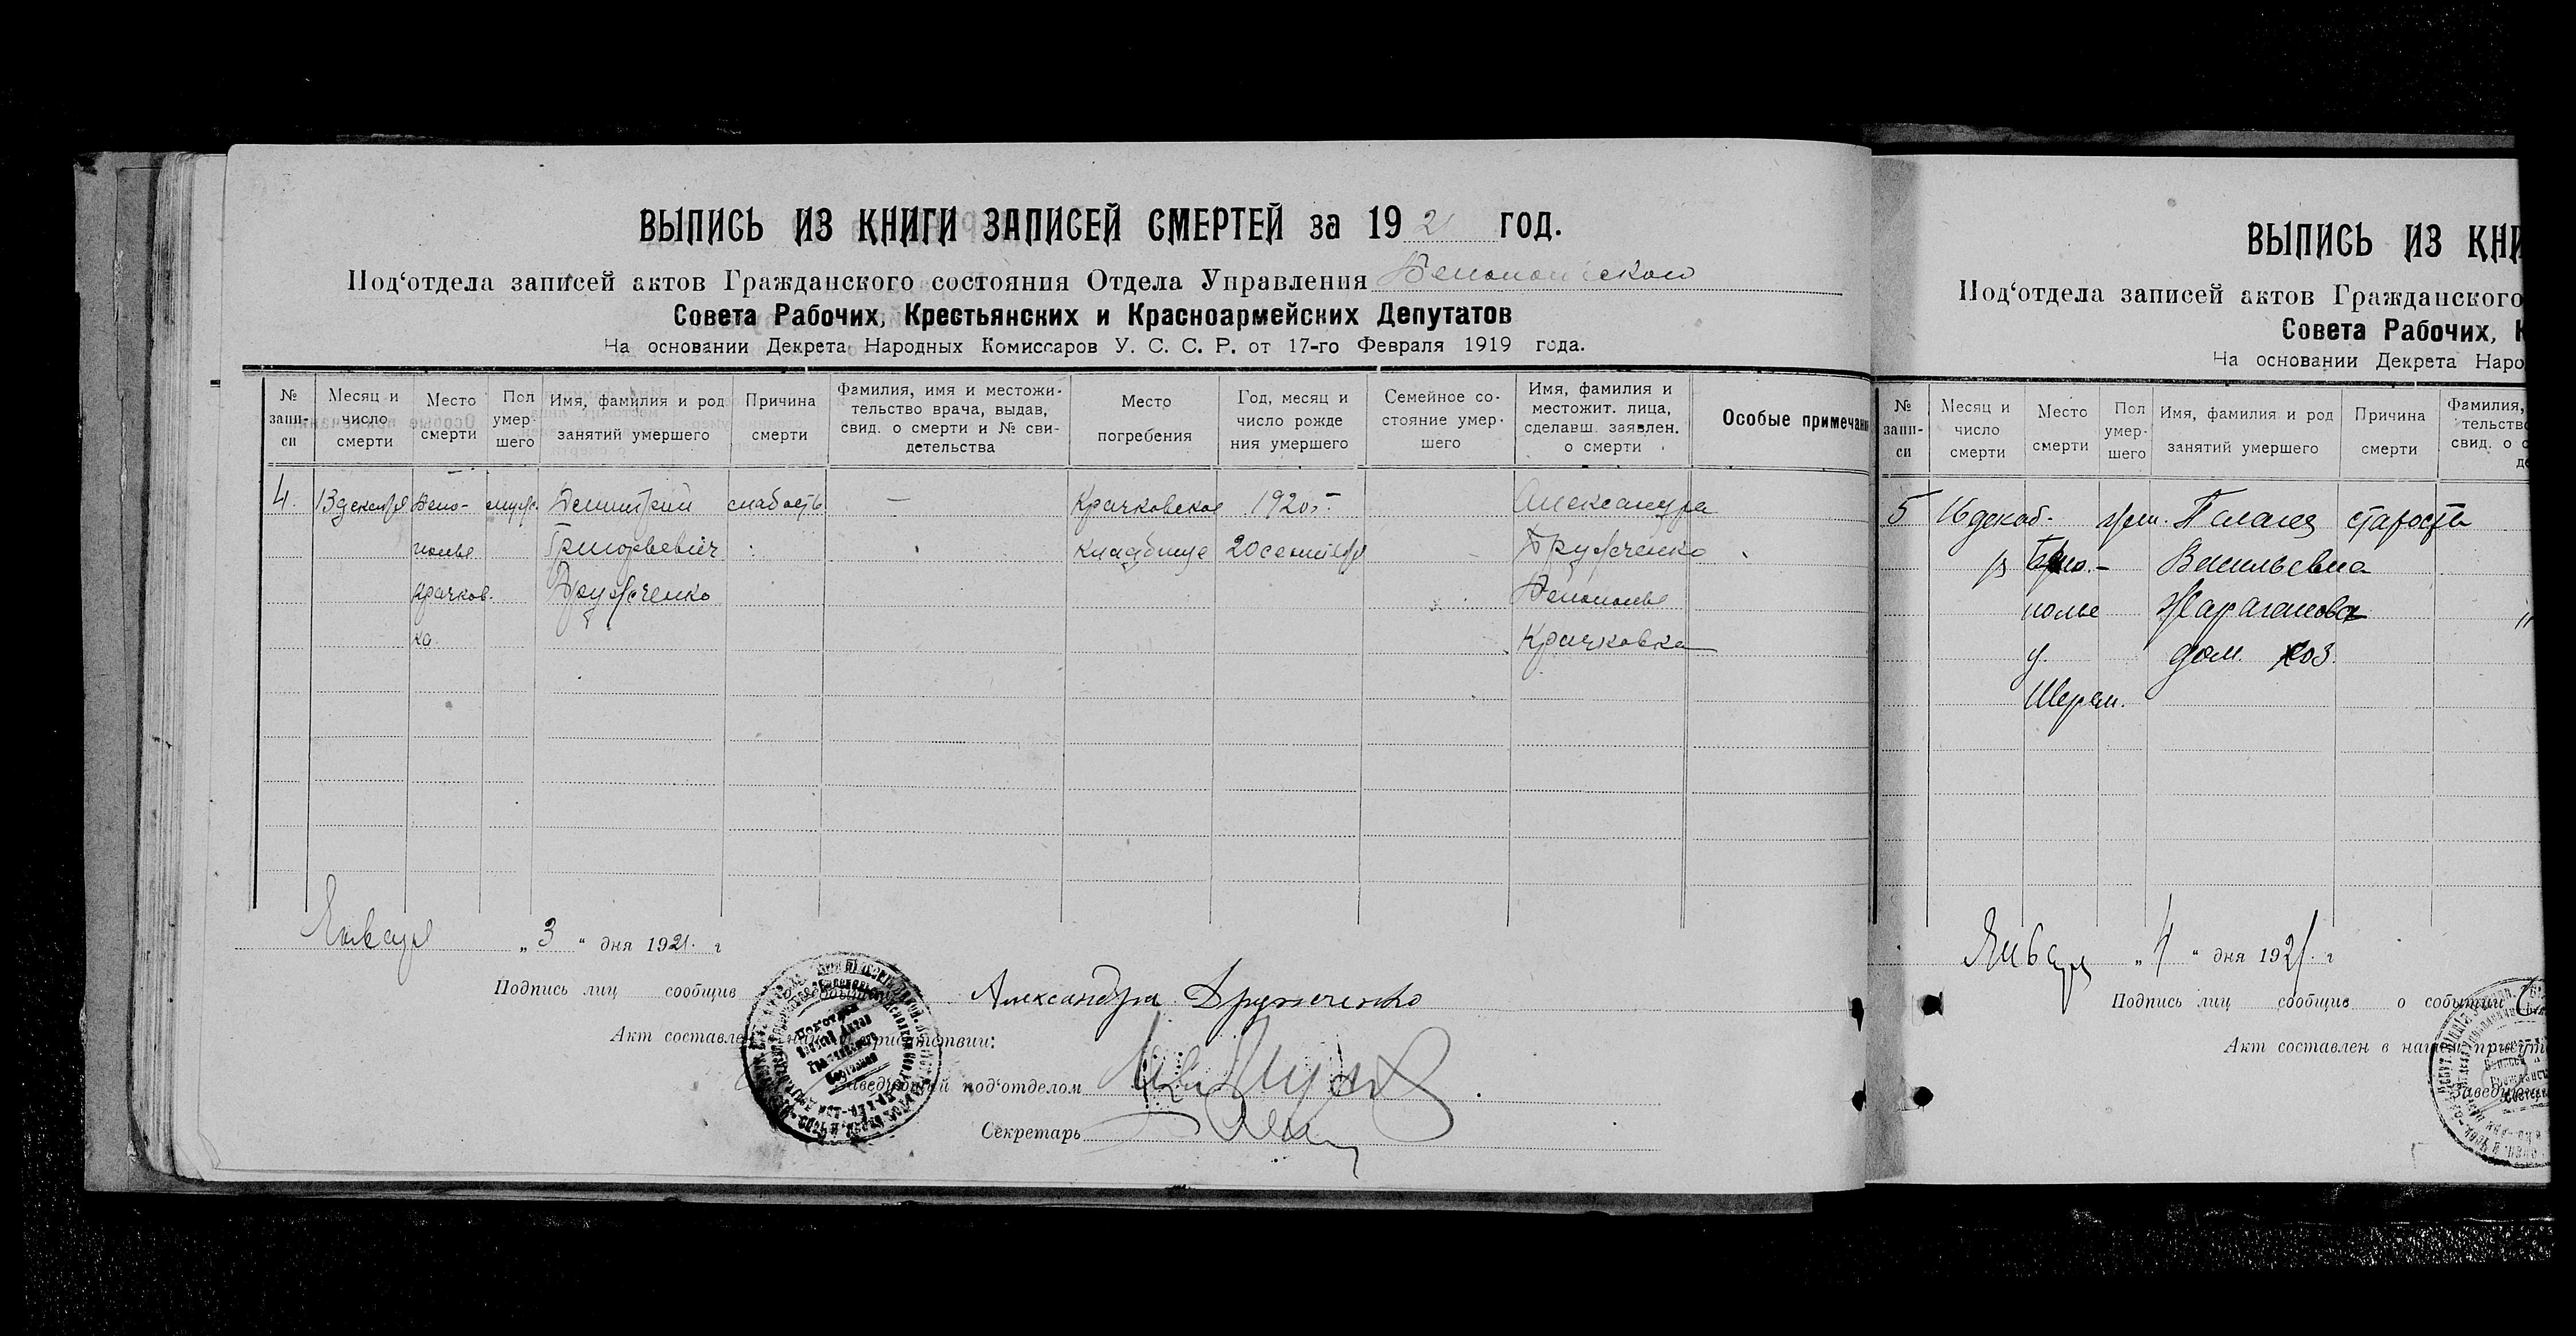 ВЫПИСЬ ИЗ КНИГИ ЗАПИСЕЙ СМЕРТЕЙ за 1921 год.
Под‘отдела записей актов Гражданского состояния Отдела Управления
Совета Рабочих, Крестьянских и Красноармейских Депутатов
На основании Декрета Народных Комиссаров У. С. С. Р. от 17-го Февраля 1919 года.
№ запи- си
Месяц и число смерти
Место смерти
Пол умер- шего
Имя, фамилия и род занятий умершего
Причина смерти
Фамилия, имя и местожи- тельство врача, выдав, свид. о смерти и № сви- детельства
Место погребения
Год, месяц и число рожде ния умершего
Семейное со- стояние умер- шего
Имя, фамилия и местожит. лица, сделавш. заявлен. о смерти
Особые примечан
4. 13 декабря Бело- муж. Димитрий слабость — Крачковское 1920 г. Александра
полье Григорьевич кладбище 20 сентября Друженко
Крачков- Друженко Белополье
ка Крачковка
Января „ 3 “ дня 1921. г
Подпись лиц сообщив Александра Друженко
Акт составлен присутствии:
Заведующий под‘отделом
Секретарь
ВЫПИСЬ ИЗ КНИ
Под‘отдела записей актов Гражданского
Совета Рабочих, К
На основании Декрета Наро
№ запи- си
Месяц и число смерти
Место смерти
Пол умер- шего
Имя, фамилия и род занятий умершего
Причина смерти
Фамилия, тельство свид. о с де
5 16 декаб- жен. Пелагея старость
ря Бело- Васильевна
полье
у. дом. хоз.
Января „ 4 “ дня 1921. г
Подпись лиц сообщив о событии
Акт составлен в нашем присут
Заведующ